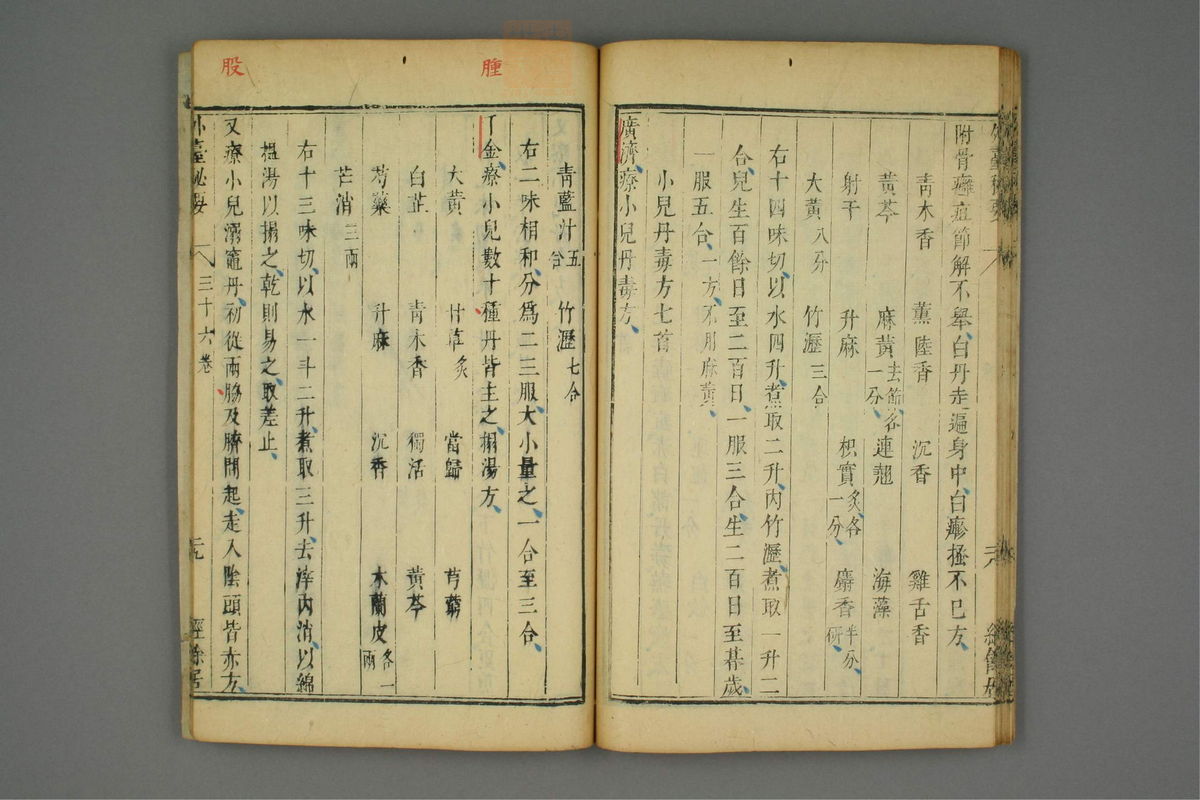 附骨癰疽節解不舉白丹走遍身中白㾦搔不已方
青木香 薰陸香 沉香 雞舌香
黃芩 麻黃去節各一分 連翹 海藻
射干 升麻 枳實炙各一分 麝香半分研
大黃八分 竹瀝三合
右十四味切以水四升煮取二升內竹瀝煮取一升二
合兒生百餘日至二百日一服三合生二百日至朞歲
一服五合一方不用麻黃
小兒丹毒方七首
廣濟療小兒丹毒方
青藍汁五合 竹瀝七合
右二味相和分為二三服大小量之一合至三合
千金療小兒數十種丹皆主之搨湯方
大黃 甘草炙 當歸 芎藭
白芷 青木香 獨活 黃芩
芍藥 升麻 沉香 木蘭皮各一兩
芒消三兩
右十三味切以水一斗二升煮取三升去滓內消以綿
搵湯以搨之乾則易之取差止
又療小兒溺竈丹初從兩股及臍間起走入陰頭皆赤方
外臺秘要 三十六卷 經餘居
腫
股